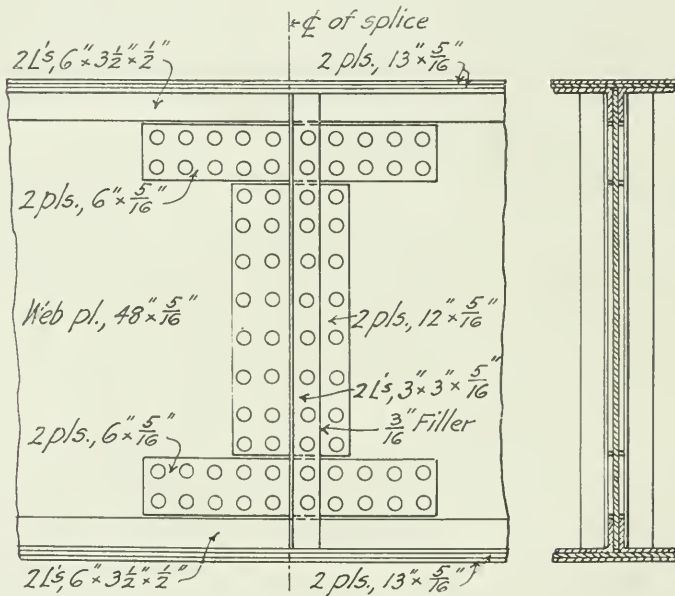 ℄ of splice
2L's, 6" × 3 1/2" × 1/2"
2 pls., 13" × 5/16"
2 pls., 6" × 5/16"
Web pl., 48" × 5/16"
2 pls., 12" × 5/16"
2L's, 3" × 3" × 5/16"
3/16" Filler
2 pls., 6" × 5/16"
2L's, 6" × 3 1/2" × 1/2"
2 pls., 13" × 5/16"